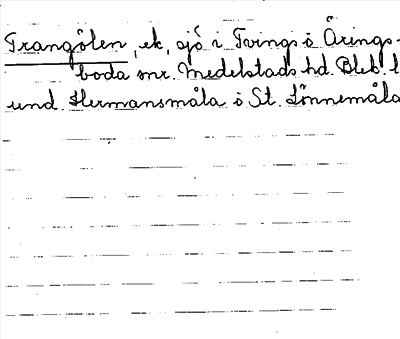 Trangölen, ek, sjö i Tving i Ärings-
boda snr. Medelstads hd. Blek. l
und. Hermansmåla i St. Lönnemåla